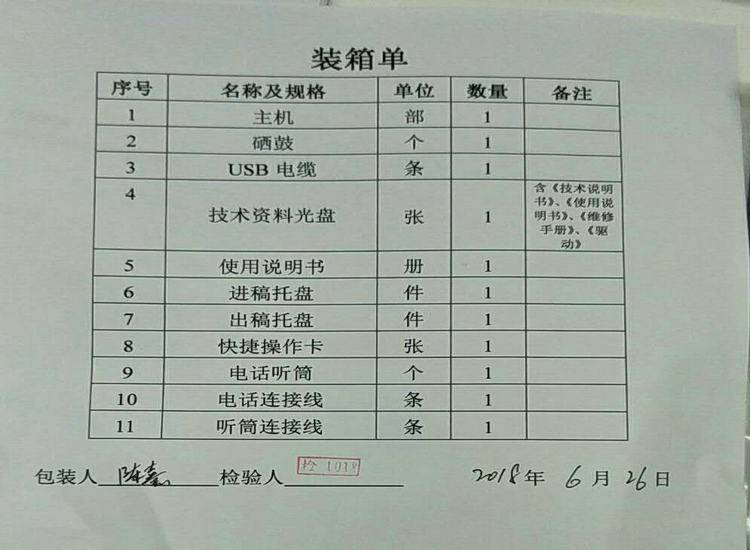 装箱单
序号 名称及规格 单位 数量 备注
1 主机 部 1
2 硒鼓 个 1
3 USB 电缆 条 1
4 技术资料光盘 张 1 含《技术说明
书》、《使用说
明书》、《维修
手册》、《驱
动》
5 使用说明书 册 1
6 进稿托盘 件 1
7 出稿托盘 件 1
8 快捷操作卡 张 1
9 电话听筒 个 1
10 电话连接线 条 1
11 听筒连接线 条 1
包装人 检验人 检1018 2018年 6月 26日